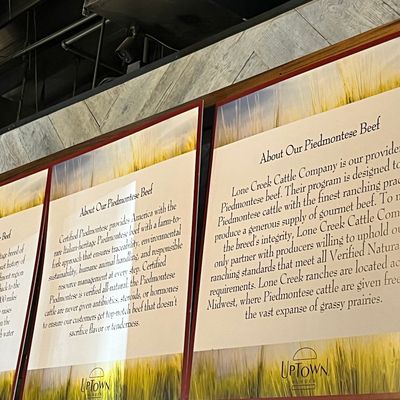 Beef
About Our Piedmontese Beef
Certified Piedmontese provides America with the
rare Italian heritage Piedmontese beef with a farm-to-
fork approach that ensures traceability, environmental
sustainability, humane animal handling, and responsible
resource management at every step. Certified
Piedmontese is verified all-natural; the Piedmontese
cattle are never given antibiotics, steroids, or hormones
to ensure our customers get top beef that doesn't
sacrifice flavor or tenderness.
UPTOWN
About Our Piedmontese Beef
Lone Creek Cattle Company is our provider
Piedmontese beef. Their program is designed to
Piedmontese cattle with the finest ranching prac
produce a generous supply of gourmet beef. To m
the breed's integrity, Lone Creek Cattle Com
only partner with producers willing to uphold ou
ranching standards that meet all Verified Natura
requirements. Lone Creek ranches are located ac
Midwest, where Piedmontese cattle are given free
the vast expanse of grassy prairies.
UPTOWN